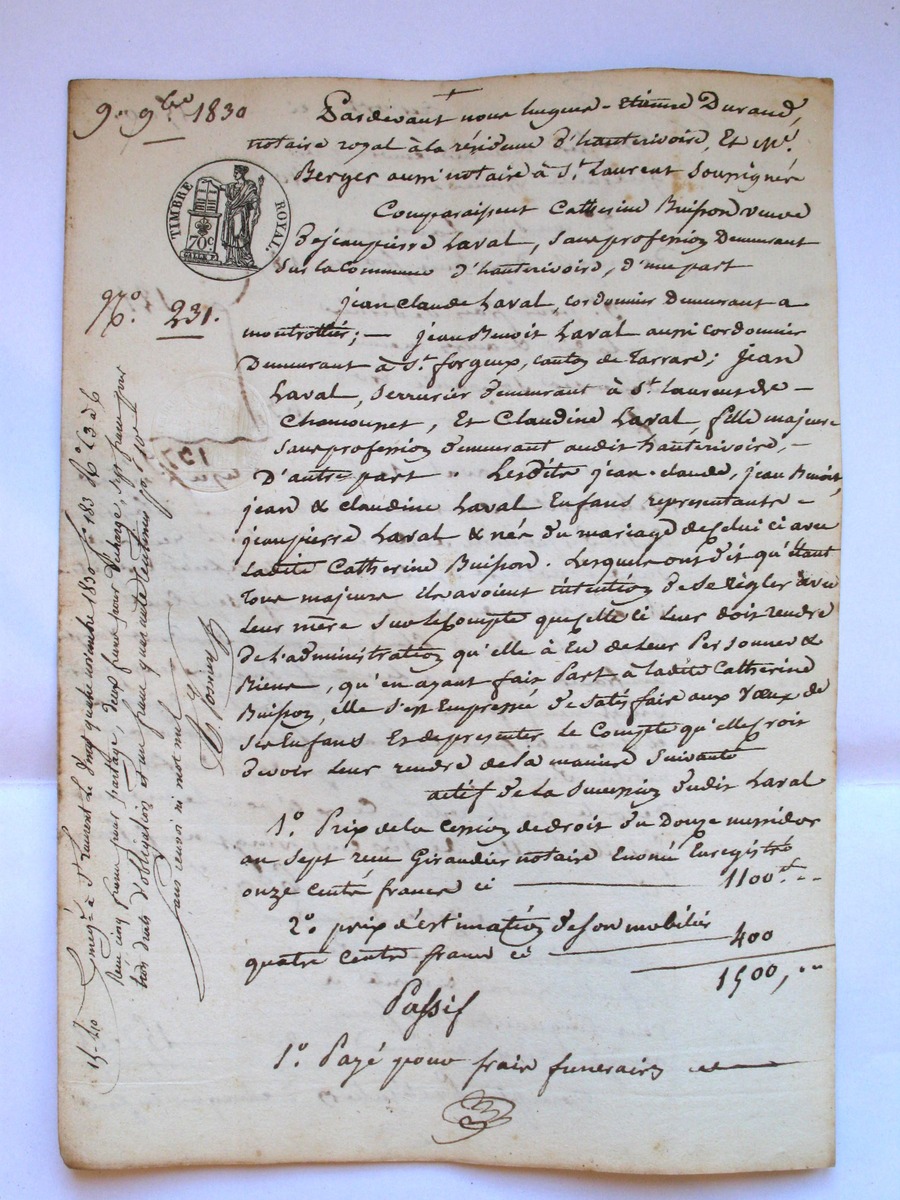 9. 9bre 1830
TIMBRE ROYAL
70c
No. 231.
Pardevant nous hugues-Etienne Durand,
notaire royal à la résidence d'hauterivoire, Et Me.
Berger aussi notaire à St. Laurent soussignés
Comparaissent Catherine Buisson veuve
de jean pierre Laval, sans profession demeurant
sur la Commune d'hauterivoire, d'une part
jean claude Laval, cordonnier demeurant a
montrottier; — jean Benoit Laval aussi cordonnier
demeurant à St. forgeux, canton de Tarrare; jean
Laval, serrurier demeurant à St. Laurent de —
Chamousset, Et Claudine Laval, fille majeure
sans profession demeurant audit hauterivoire, —
D'autre part Lesdits jean-claude, jean Benoit,
jean & claudine Laval Enfans representants —
jean pierre Laval & nés du mariage de celui ci avec
ladite Catherine Buisson. Lesquels ont dit qu'Etant
tous majeurs ils avoient intention de se régler avec
Leur mère sur le Compte que celle ci Leur doit rendre
de L'administration qu'elle à Eu de Leurs Personnes &
Biens, qu'en ayant fait Part à ladite Catherine
Buisson, elle s'est Empressée de satisfaire aux Vœux de
ses Enfans Et de presenter Le Compte qu'elle croit
devoir Leur rendre de la maniere suivante
actif de la succession dudit Laval
1o. Prix de la cession de droit du Douze messidor
an sept reçue Giraudier notaire Enregistré
onze cents francs ci — 1100 ..
2o prix d'estimation de son mobilier
quatre cents francs ci — 400
1500, ..
Passif
1o. Payé pour frais funeraires
Enregé à St. Laurent Le onze novembre 1830 fo. 183 Ro Cs 3 à 6
Reçu cinq francs pour partage, deux francs pour décharge, sept francs pour
trois droits d'obligation et un franc quarante centimes pour 10e
sans renvoi ni mot nul